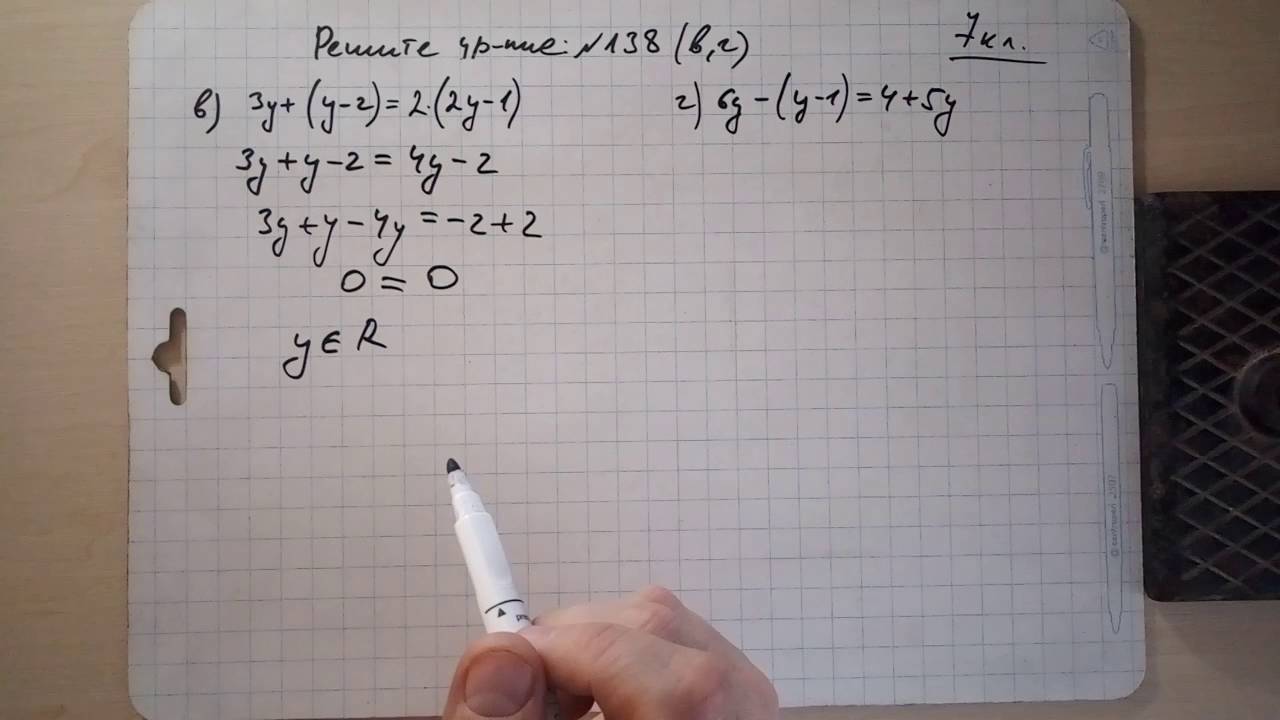 Решите ур-ние: №138 (в,г)
7 кл.
в) 3y+(y-2)=2·(2y-1)
3y+y-2=4y-2
3y+y-4y=-2+2
0=0
y∈R
г) 6y-(y-1)=4+5y